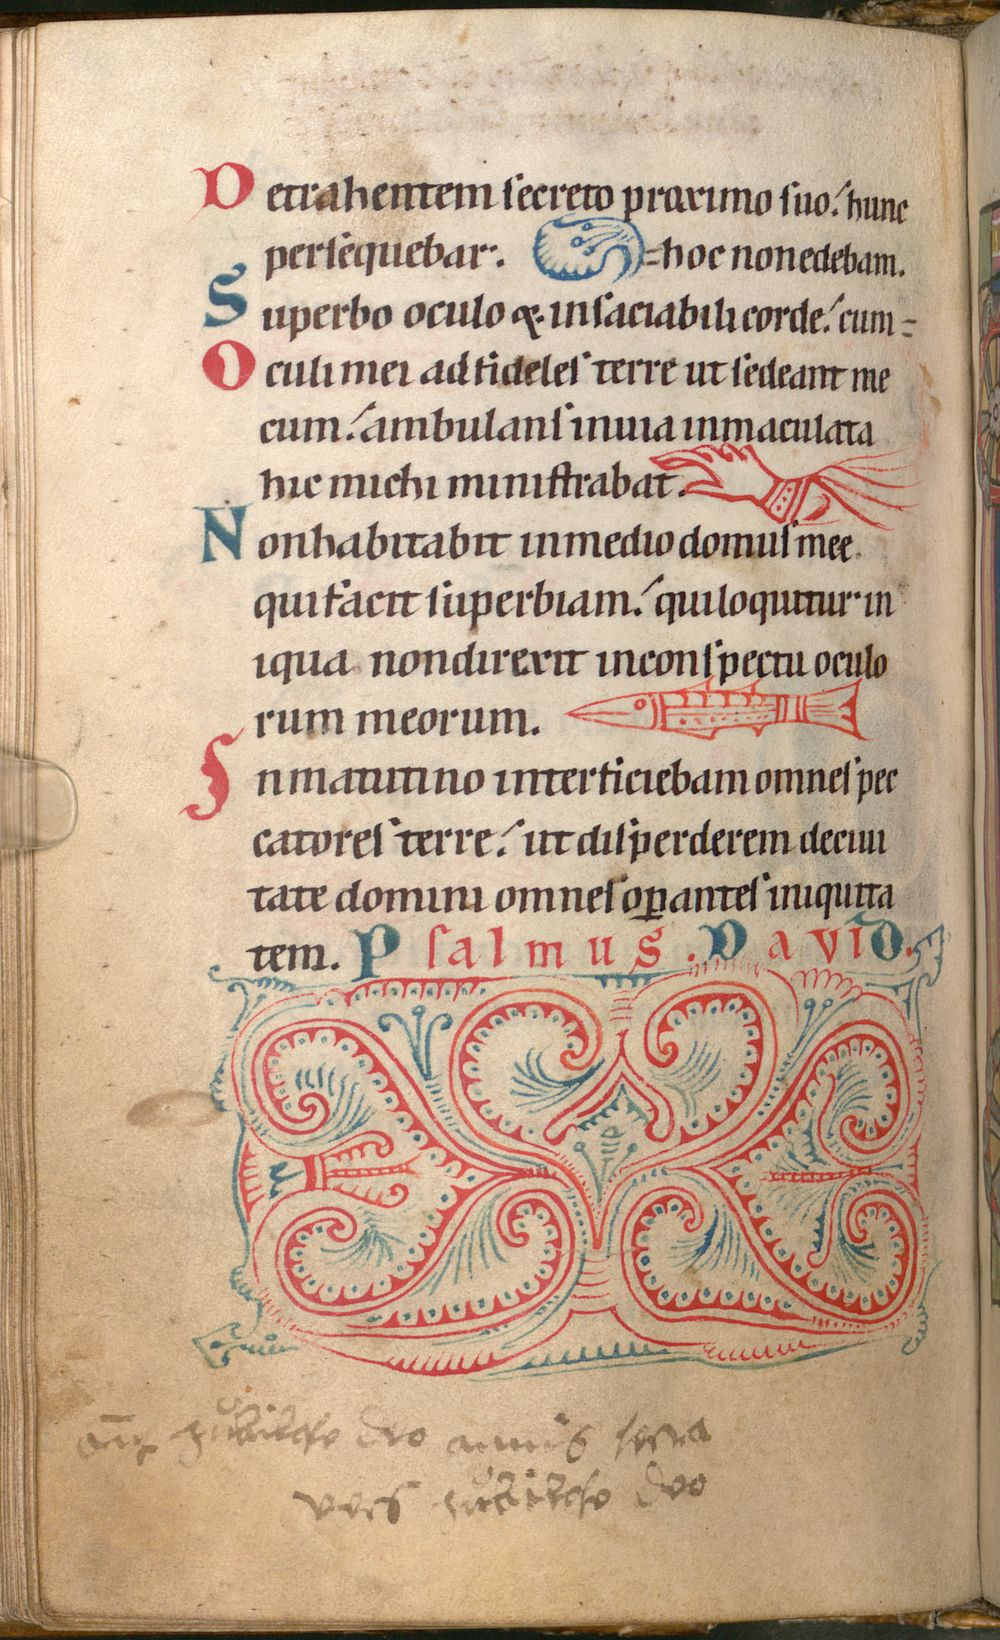 Detrahentem secreto proximo suo: hunc
persequebar: =hoc non edebam.
Superbo oculo & insaciabili corde: cum=
Oculi mei ad fideles terre ut sedeant me
cum: ambulans in uia inmaculata
hic michi ministrabat.
Non habitabit in medio domus mee
qui facit superbiam: qui loquitur in
iqua non direxit in conspectu oculo
rum meorum.
In matutino interficiebam omnes pec
catores terre: ut disperderem de ciui
tate domini omnes oꝑantes iniquita
tem. Psalmus. David.